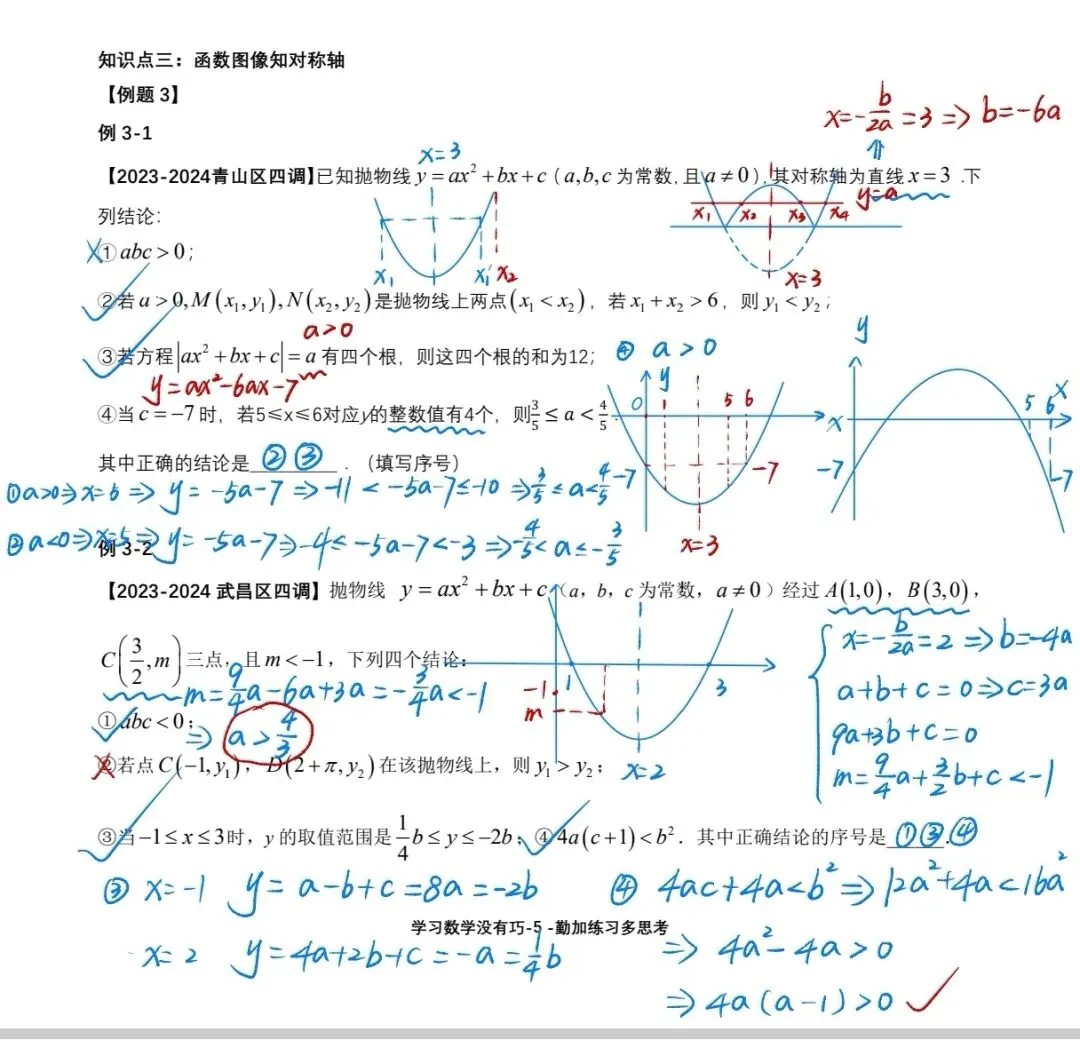 知识点三：函数图像知对称轴
【例题 3】
例 3-1
x=-b/2a=3 => b=-6a
x=3
【2023-2024青山区四调】已知抛物线 y=ax²+bx+c（a,b,c 为常数,且 a≠0）,其对称轴为直线 x=3 .下
列结论：
y=a
x₁ x₂ x₃ x₄
x=3
x₁ x₁' x₂
①abc>0；
②若 a>0,M(x₁,y₁),N(x₂,y₂)是抛物线上两点(x₁<x₂)，若 x₁+x₂>6，则 y₁<y₂；
a>0
③若方程|ax²+bx+c|=a 有四个根，则这四个根的和为12；
y=ax²-6ax-7
④当 c=-7 时，若5≤x≤6对应y的整数值有4个，则3/5≤a<4/5.
④ a>0
y
0 1 5 6 x
-7 -7
x=3
y
5 6 x
-7 -7
其中正确的结论是 ②③ ．（填写序号）
①a>0=>x=6=> y=-5a-7=>-11<-5a-7≤-10=>3/5≤a<4/5
②a<0=>x=5=>y=-5a-7=>-4≤-5a-7<-3=>-4/5<a≤-3/5
例 3-2
【2023-2024 武昌区四调】抛物线 y=ax²+bx+c（a，b，c 为常数，a≠0）经过 A(1,0)，B(3,0)，
C(3/2,m)三点，且 m<-1，下列四个结论：
m=9/4a-6a+3a=-3/4a<-1
=> a>4/3
1 3
-1
m
x=2
x=-b/2a=2=>b=-4a
a+b+c=0=>c=3a
9a+3b+c=0
m=9/4a+3/2b+c<-1
①abc<0；
②若点 C(-1,y₁)，D(2+π,y₂)在该抛物线上，则 y₁>y₂；
③当-1≤x≤3时，y 的取值范围是1/4b≤y≤-2b；④4a(c+1)<b²．其中正确结论的序号是 ①③④ .
③ x=-1 y=a-b+c=8a=-2b
④ 4ac+4a<b²=>12a²+4a<16a²
学习数学没有巧-5 -勤加练习多思考
x=2 y=4a+2b+c=-a=1/4b
=> 4a²-4a>0
=> 4a(a-1)>0